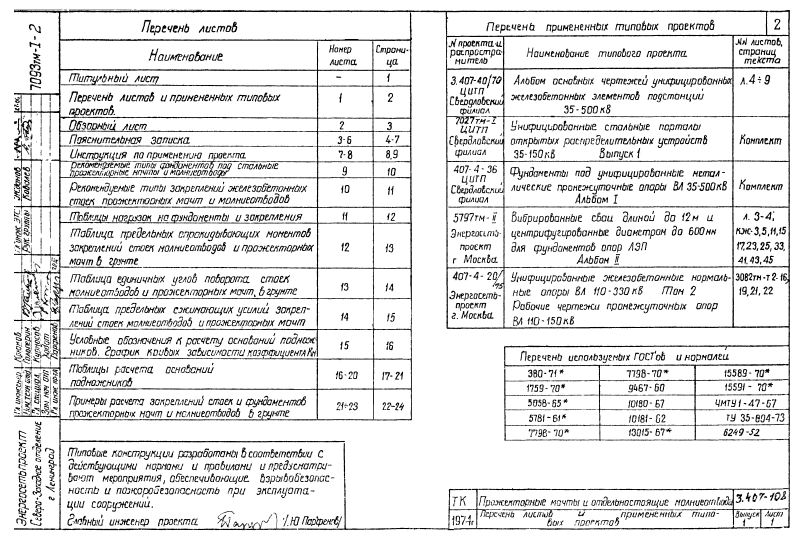 7093тм-I-2
Перечень листов
Наименование
Номер листа
Страница
Титульный лист – 1
Перечень листов и примененных типовых 1 2
проектов.
Обзорный лист 2 3
Пояснительная записка 3-6 4-7
Инструкция по применению проекта 7-8 8,9
Рекомендуемые типы фундаментов под стальные 9 10
прожекторные мачты и молниеотводы
Рекомендуемые типы закреплений железобетонных 10 11
стоек прожекторных мачт и молниеотводов
Таблицы нагрузок на фундаменты и закрепления 11 12
Таблица предельных опрокидывающих моментов
закреплений стоек молниеотводов и прожекторных 12 13
мачт в грунте
Таблица единичных углов поворота стоек 13 14
молниеотводов и прожекторных мачт, в грунте
Таблица предельных сжимающих усилий закреп-
лений стоек молниеотводов и прожекторных мачт 14 15
Условные обозначения к расчету оснований поднож-
ников. График кривых зависимости коэффициента Кн 15 16
Таблицы расчета оснований 16-20 17-21
подножников
Примеры расчета закреплений стоек и фундаментов 21÷23 22-24
прожекторных мачт и молниеотводов в грунте
Типовые конструкции разработаны в соответствии с
действующими нормами и правилами и предусматри-
вают мероприятия, обеспечивающие взрывобезопас-
ность и пожаробезопасность при эксплуата-
ции сооружений.
Главный инженер проекта /Ю Парфенов/
Энергосетьпроект
Северо-Западное отделение
г Ленинград
Перечень примененных типовых проектов 2
N проекта и распростра-нитель
Наименование типового проекта
NN листов, страниц текста
3.407-40/70 Альбом основных чертежей унифицированных л.4÷9
ЦИТП железобетонных элементов подстанций
Свердловский филиал 35-500кВ
7027тм-I Унифицированные стальные порталы
ЦИТП открытых распределительных устройств Комплект
Свердловский филиал 35-150кВ Выпуск 1
407-4-36 Фундаменты под унифицированные метал-
ЦИТП лические промежуточные опоры ВЛ 35-500кВ Комплект
Свердловский филиал Альбом I
5797тм-II Вибрированные сваи длиной до 12м и л. 3-4,
Энергосеть- центрифугированные диаметром до 600мм КЖ-3,5,11,15
проект для фундаментов опор ЛЭП 17,23,25,33,
г Москва. Альбом II 41,43,45
407-4-20/75 Унифицированные железобетонные нормаль- 3082тм-т2-16,
Энергосеть- ные опоры ВЛ 110-330 кВ Том 2 19,21,22
проект Рабочие чертежи промежуточных опор
г. Москва. ВЛ 110-150кВ
Перечень используемых ГОСТ'ов и нормалей
380-71* 7798-70* 15589-70*
1759-70* 9467-60 15591-70*
5058-65* 10180-67 ЧМТУ1-47-67
5781-61* 10181-62 ТУ 35-804-73
7798-70* 13015-67* 6249-52
ТК Прожекторные мачты и отдельностоящие молниеотводы 3.407-108
1974г Перечень листов и примененных типо-
вых проектов Выпуск 1 Лист 1